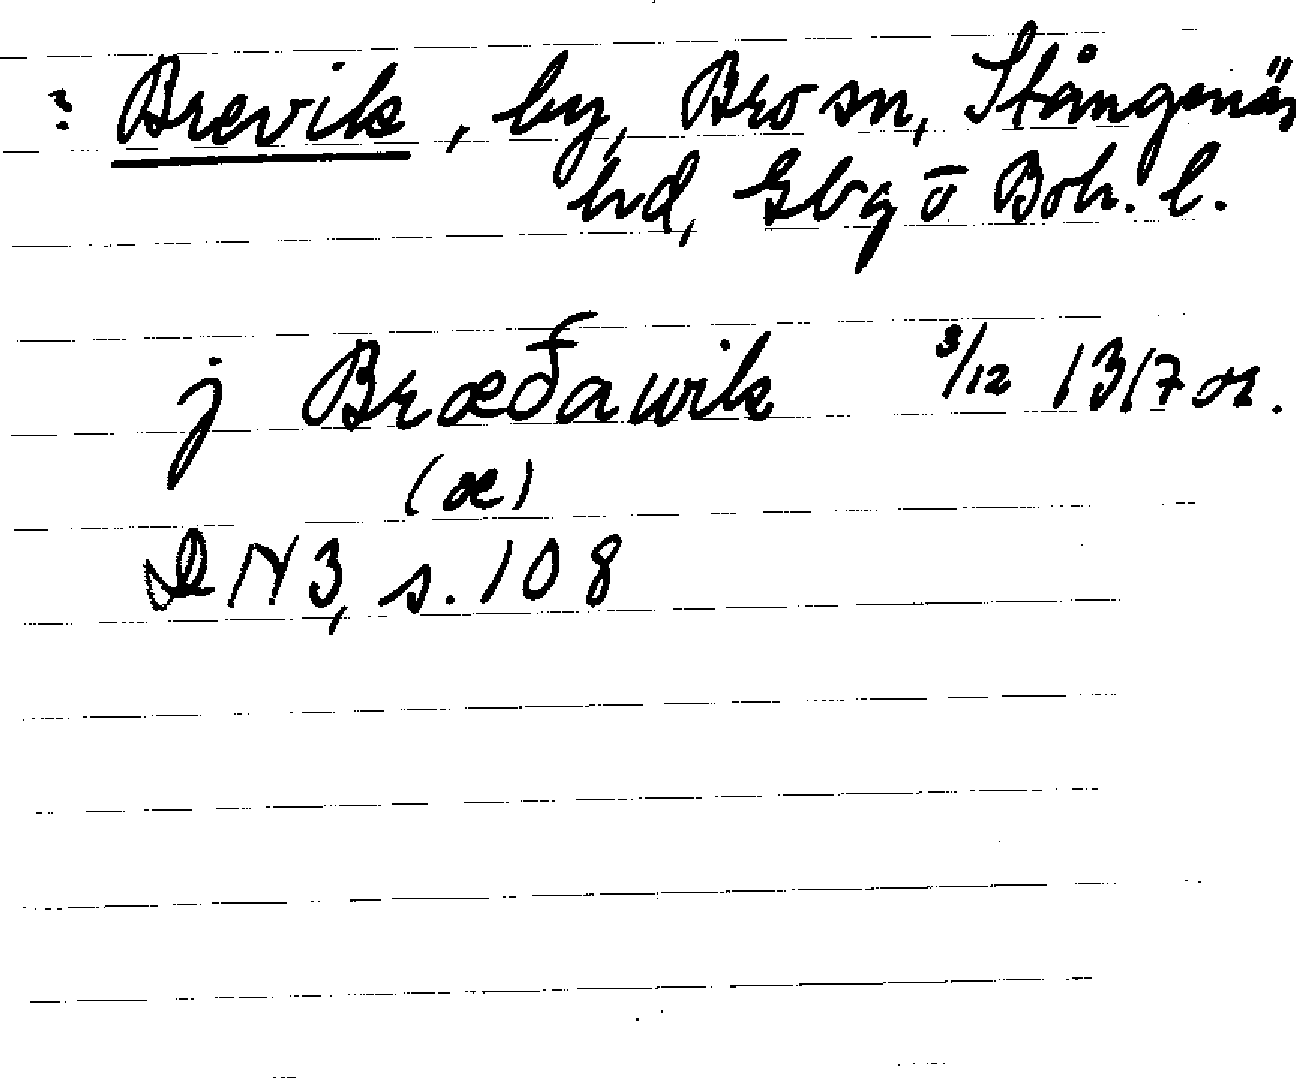 : Brevik, by, Bro sn, Stångenäs
hd, Gbg o Boh. l.
j Bræðawik 3/12 1317 or.
(æ)
DN 3, s. 108